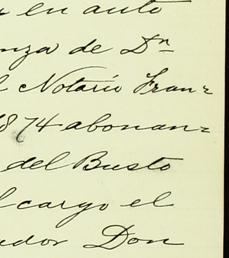 en auto
nza de Dⁿ
l Notario Fran=
1874 abonan=
del Busto
l cargo el
ador Don